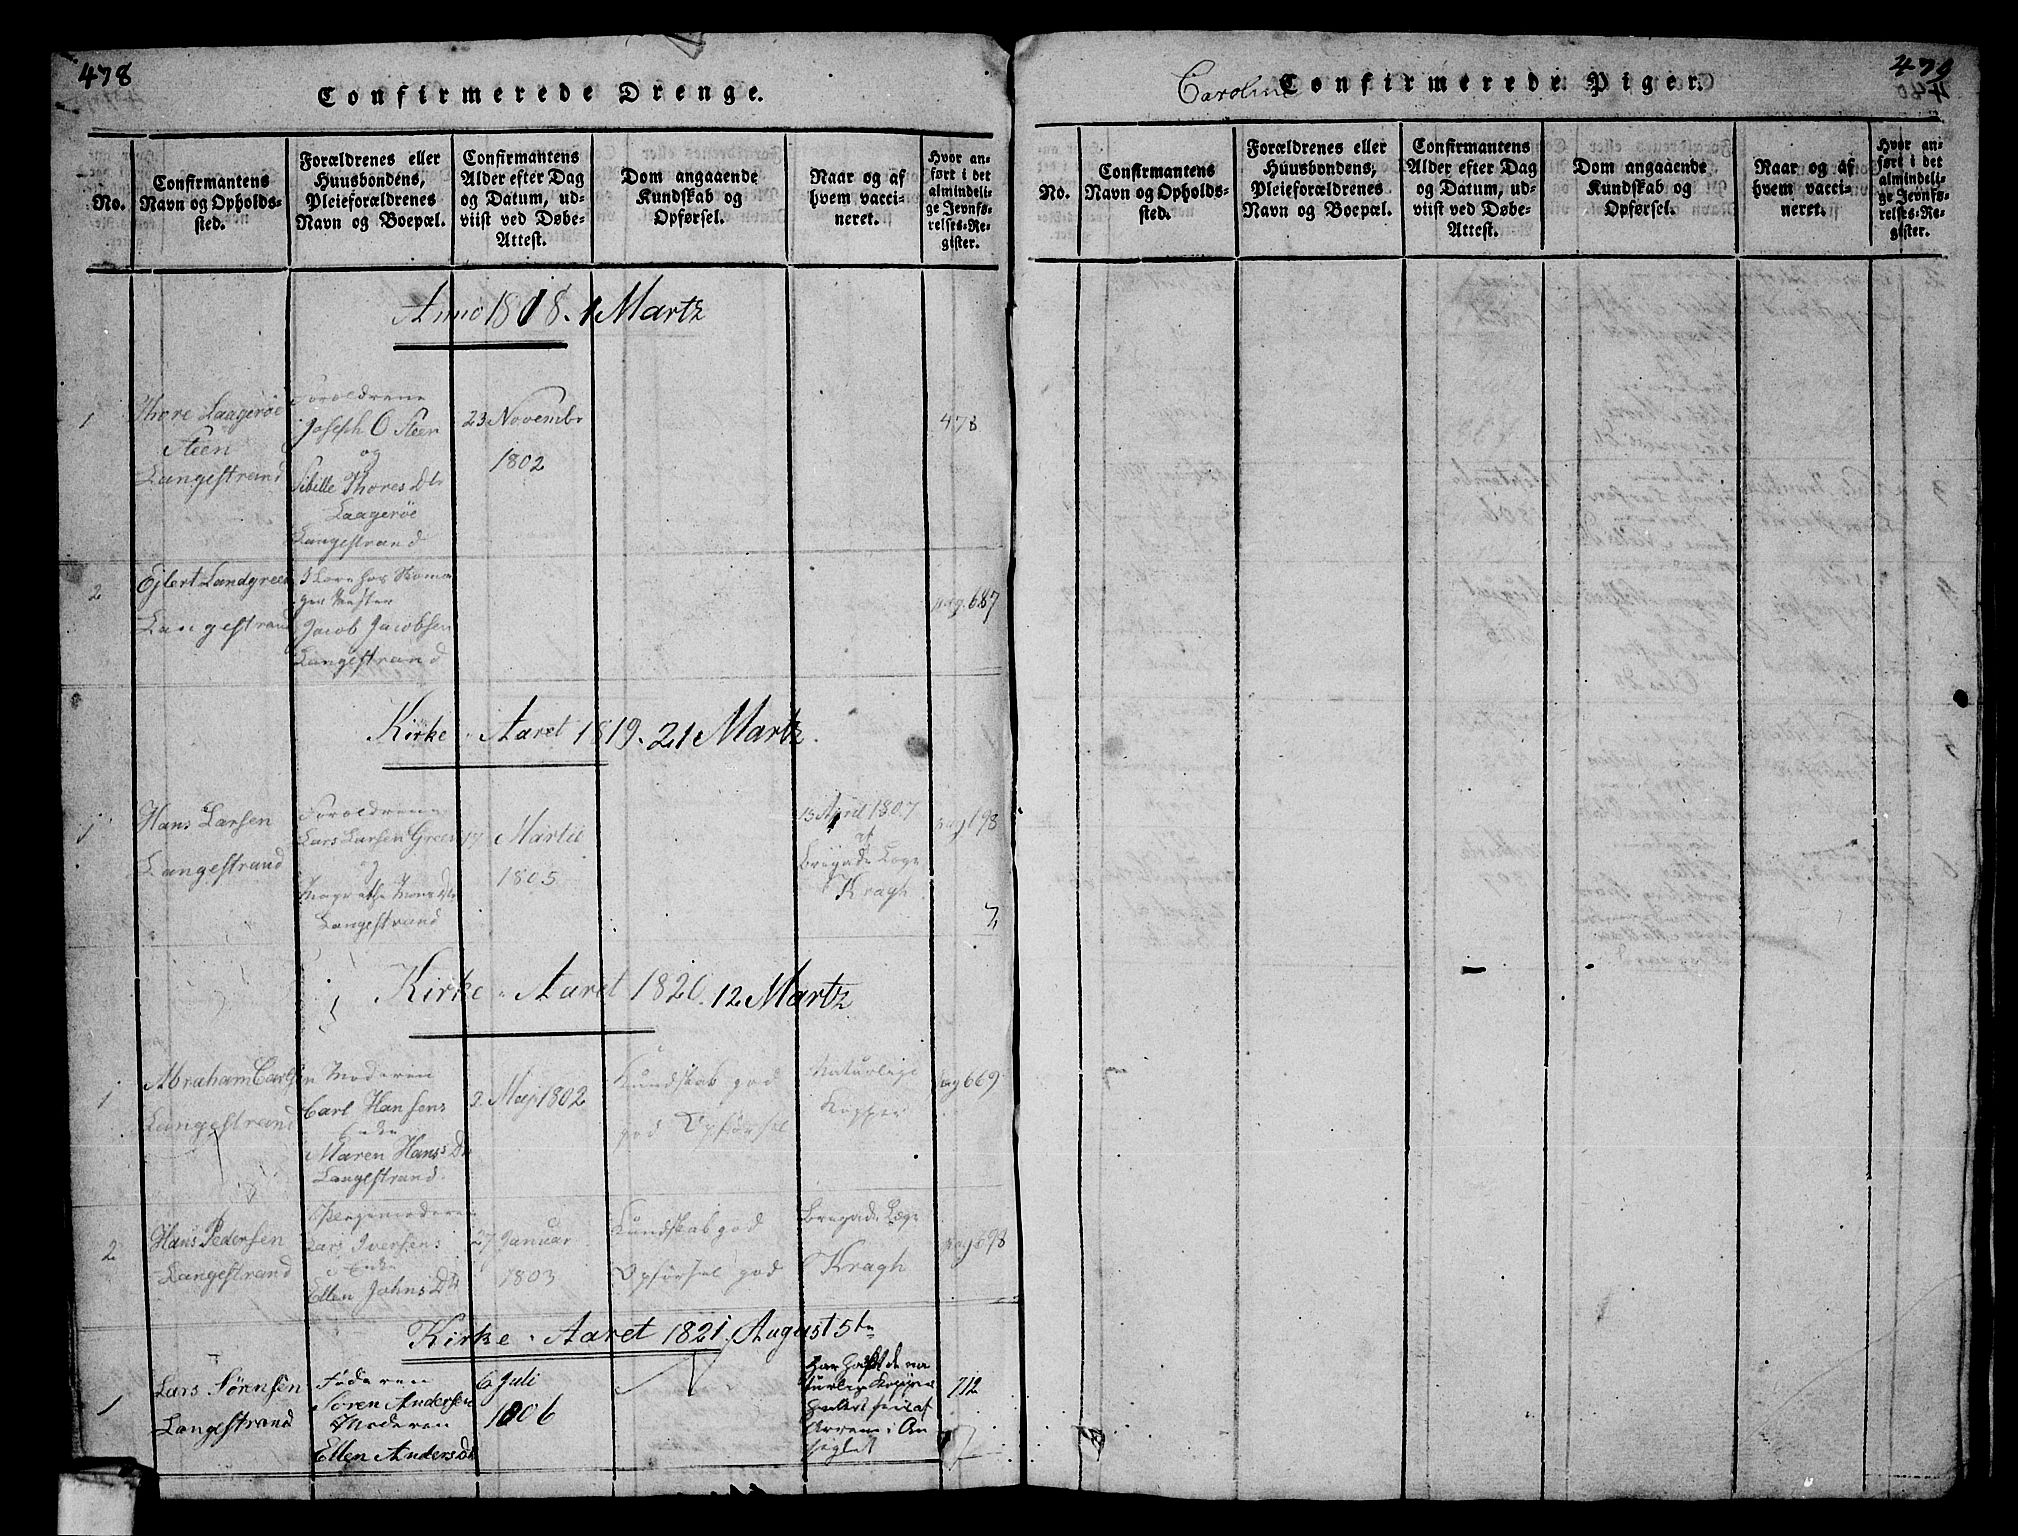 478
Confirmerede Drenge.
No.
Confirmantens
Navn og Opholds-
sted.
Forældrenes eller
Huusbondens,
Pleieforældrenes
Navn og Boepæl.
Confirmantens
Alder efter Dag
og Datum, ud-
viist ved Døbe-
Attest.
Dom angaaende
Kundskab og
Opførsel.
Naar og af
hvem vacci-
neret.
Hvor an-
ført i det
almindeli-
ge Jevnfø-
relses-Re-
gister.
Anno 1818. 1 Martz
1
Thore Laagerøe
Steen
Langestrand
Foroldrene
Joseph O Steen
og
Sibille Thores Dtr
Laagerøe
Langestrand
23 Novembr
1802
478
2
Ejlert Landgreen
Langestrand
Jacob Jacobsen
Langestrand
pag. 687
Kirke-Aaret 1819. 21 Martz.
1
Hans Larsen
Langestrand
Foroldrene
Lars Larsen Green
og
Langestrand
17 Martii
1805
15 April 1807
af
Brigade Loge
Kragh
pag 698
7
Kirke-Aaret 1820. 12 Martz
1
Abraham Carlsen
Langestrand
Moderen
Carl Hansens
Enke
Maren Hans Dtr
Langestrand.
2. Maj 1802
Kundskab god
god Opførsel
Naturlige
Kopper
pag 669
2
Hans Pedersen
Langestrand
Lars Iversens
Enke
Ellen Johns Dtr
27 Januar
1803
Kundskab god
Opførsel god
Brigade Læge
Kragh
pag 698
Kirke-Aaret 1821. August 5te
1
Lars Sørensen
Langestrand
Faderen
Søren Andersen
Moderen
Ellen Anders Dtr
6 Juli
1806
Har haft de na
turlige Kopper
Arrene i An
sigtet
712
7
479
Caroline
Confirmerede Piger.
No.
Confirmantens
Navn og Opholds-
sted.
Forældrenes eller
Huusbondens,
Pleieforældrenes
Navn og Boepæl.
Confirmantens
Alder efter Dag
og Datum, ud-
viist ved Døbe-
Attest.
Dom angaaende
Kundskab og
Opførsel.
Naar og af
hvem vacci-
neret.
Hvor an-
ført i det
almindeli-
ge Jevnfø-
relses-Re-
gister.